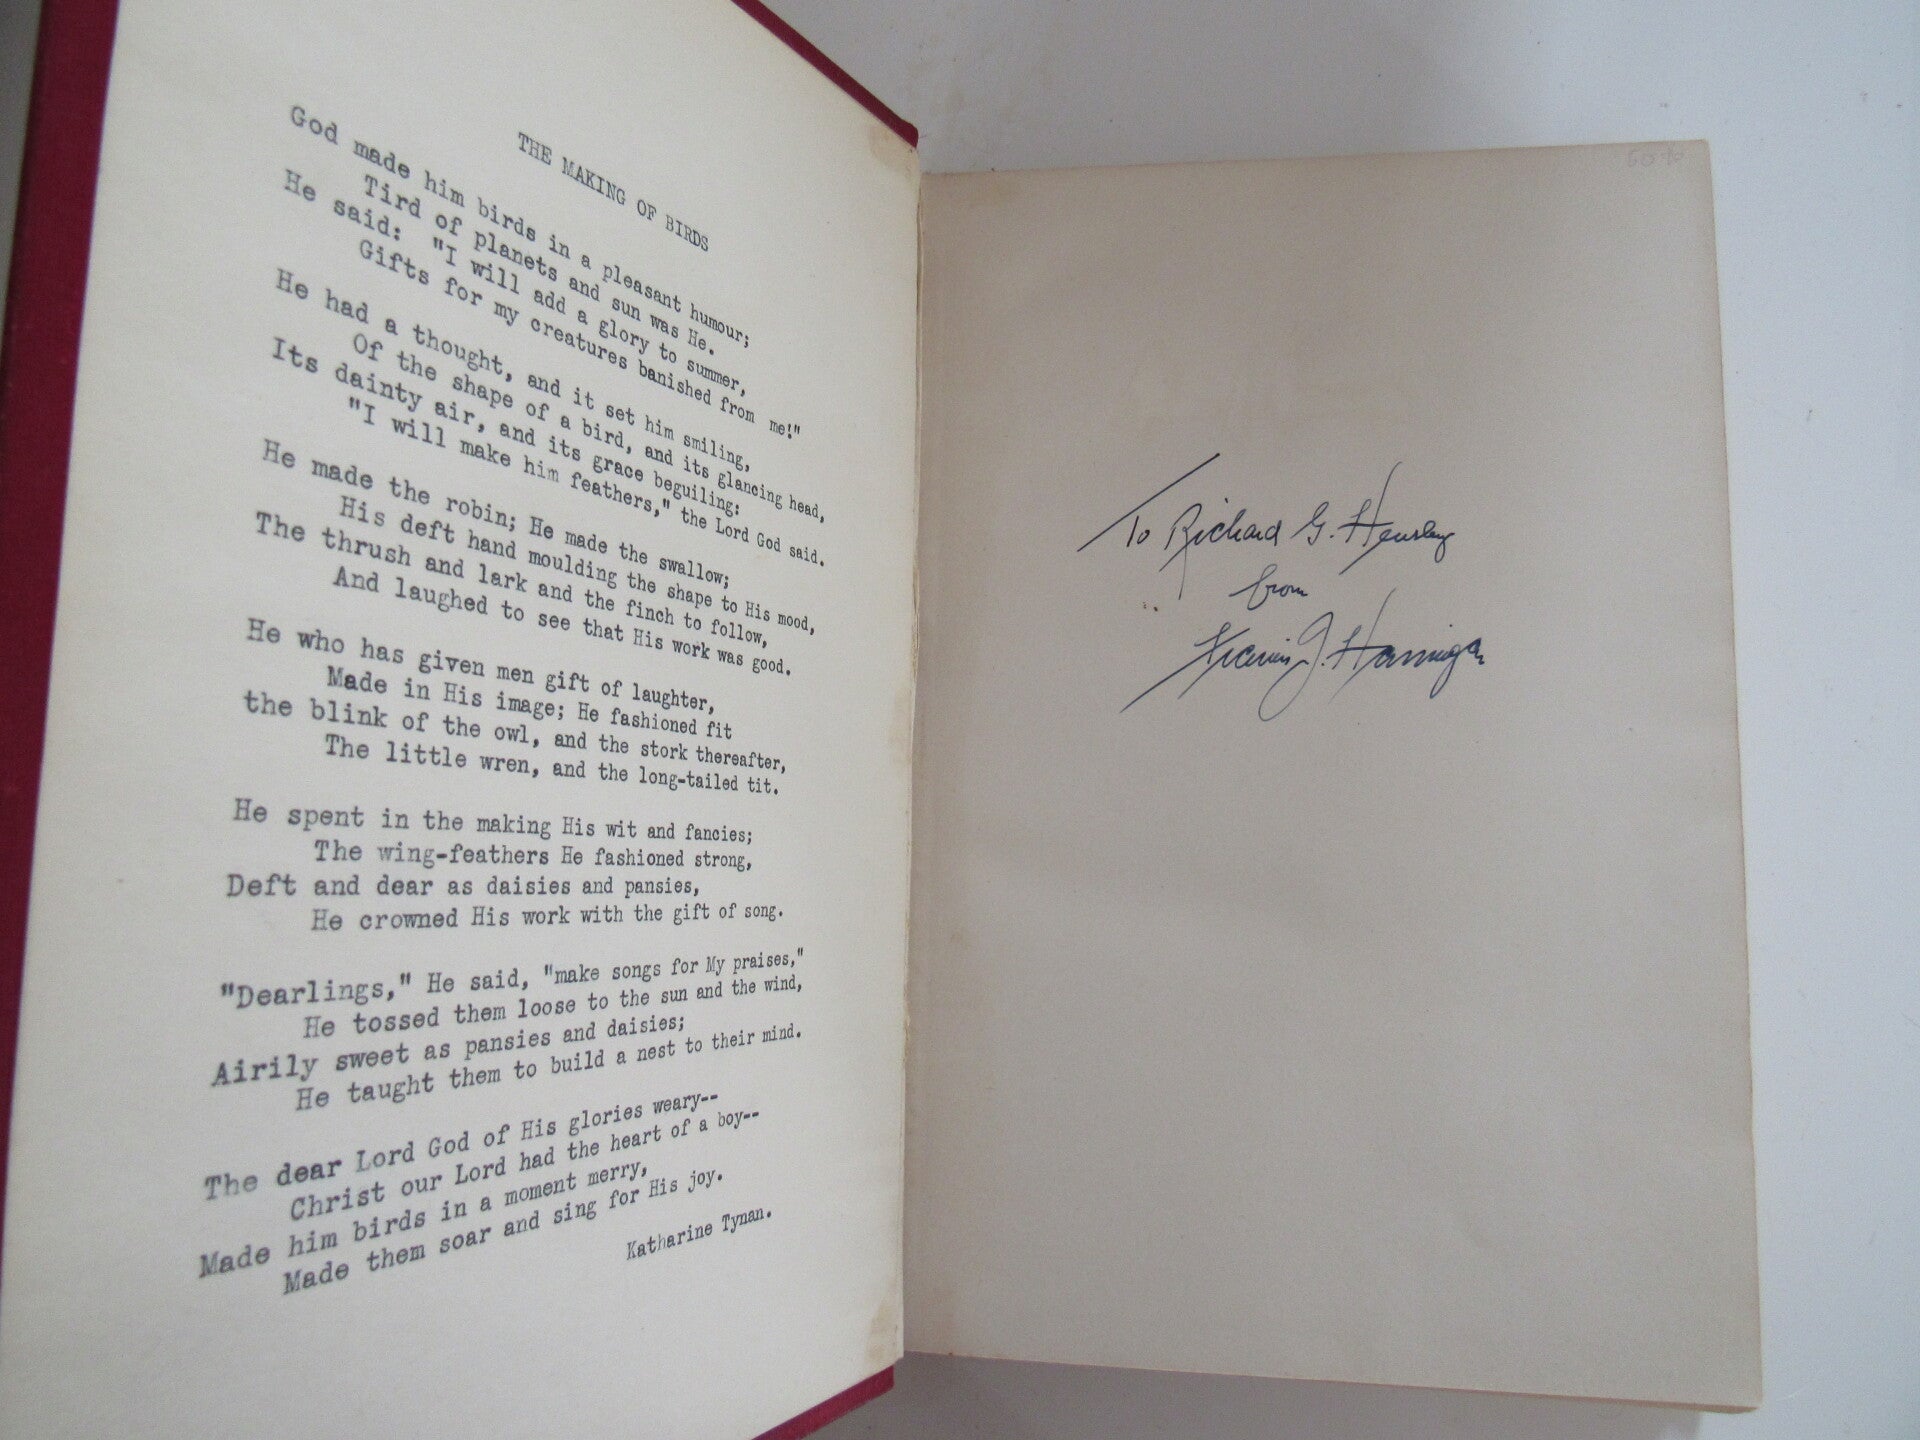 THE MAKING OF BIRDS
God made him birds in a pleasant humour;
Tird of planets and sun was He.
He said: "I will add a glory to summer,
Gifts for my creatures banished from me!"
He had a thought, and it set him smiling,
Of the shape of a bird, and its glancing head,
Its dainty air, and its grace beguiling:
"I will make him feathers," the Lord God said.
He made the robin; He made the swallow;
His deft hand moulding the shape to His mood,
The thrush and lark and the finch to follow,
And laughed to see that His work was good.
He who has given men gift of laughter,
Made in His image; He fashioned fit
the blink of the owl, and the stork thereafter,
The little wren, and the long-tailed tit.
He spent in the making His wit and fancies;
The wing-feathers He fashioned strong,
Deft and dear as daisies and pansies,
He crowned His work with the gift of song.
"Dearlings," He said, "make songs for My praises,"
He tossed them loose to the sun and the wind,
Airily sweet as pansies and daisies;
He taught them to build a nest to their mind.
The dear Lord God of His glories weary--
Christ our Lord had the heart of a boy--
Made him birds in a moment merry,
Made them soar and sing for His joy.
Katharine Tynan.
To Richard G. Hensley
from
Francis J. Hannigan